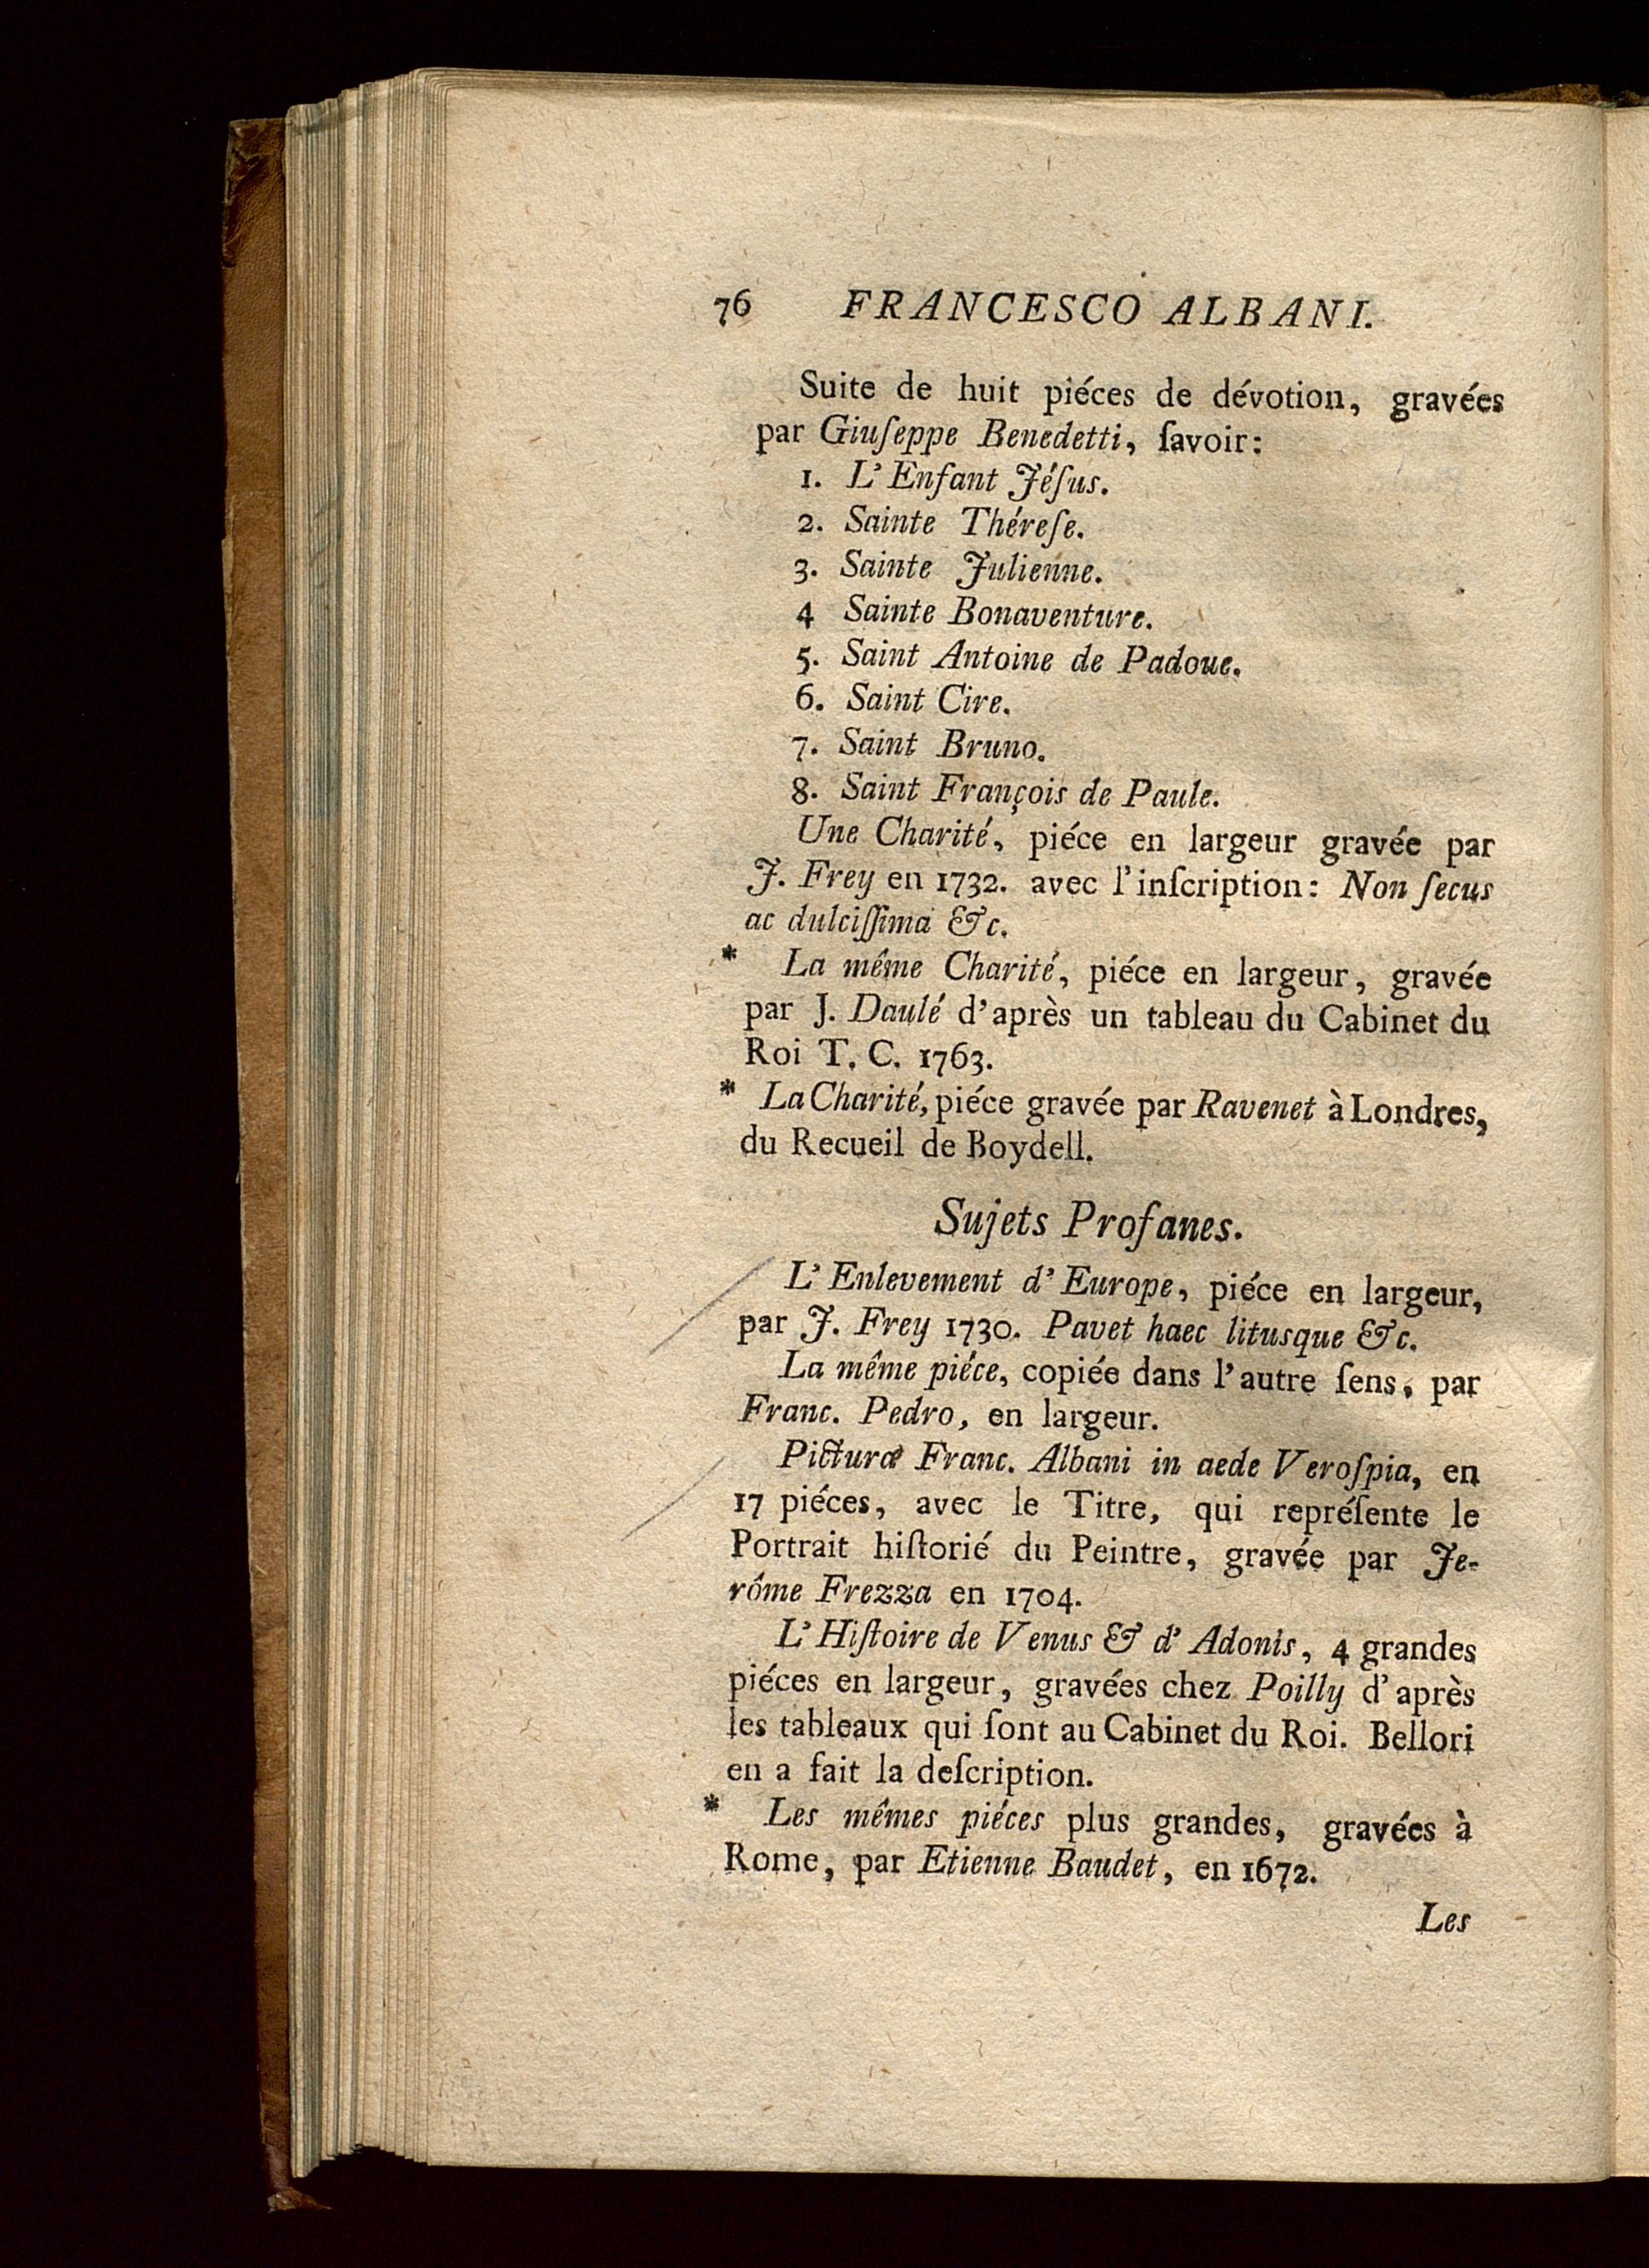 76 FRANCESCO ALBANI.
Suite de huit piéces de dévotion, gravées
par Giuſeppe Benedetti, ſavoir:
1. L'Enfant Jéſus.
2. Sainte Théreſe.
3. Sainte Julienne.
4 Sainte Bonaventure.
5. Saint Antoine de Padoue.
6. Saint Cire.
7. Saint Bruno.
8. Saint François de Paule.
Une Charité, piéce en largeur gravée par
J. Frey en 1732. avec l'inſcription: Non ſecus
ac dulciſſima &c.
* La même Charité, piéce en largeur, gravée
par J. Daulé d'après un tableau du Cabinet du
Roi T. C. 1763.
* La Charité, piéce gravée par Ravenet à Londres,
du Recueil de Boydell.
Sujets Profanes.
L'Enlevement d'Europe, piéce en largeur,
par J. Frey 1730. Pavet haec litusque &c.
La même piéce, copiée dans l'autre ſens, par
Franc. Pedro, en largeur.
Picturæ Franc. Albani in aede Veroſpia, en
17 piéces, avec le Titre, qui repréſente le
Portrait hiſtorié du Peintre, gravée par Je-
rôme Frezza en 1704.
L'Hiſtoire de Venus & d'Adonis, 4 grandes
piéces en largeur, gravées chez Poilly d'après
les tableaux qui ſont au Cabinet du Roi. Bellori
en a fait la deſcription.
* Les mêmes piéces plus grandes, gravées à
Rome, par Etienne Baudet, en 1672.
Les